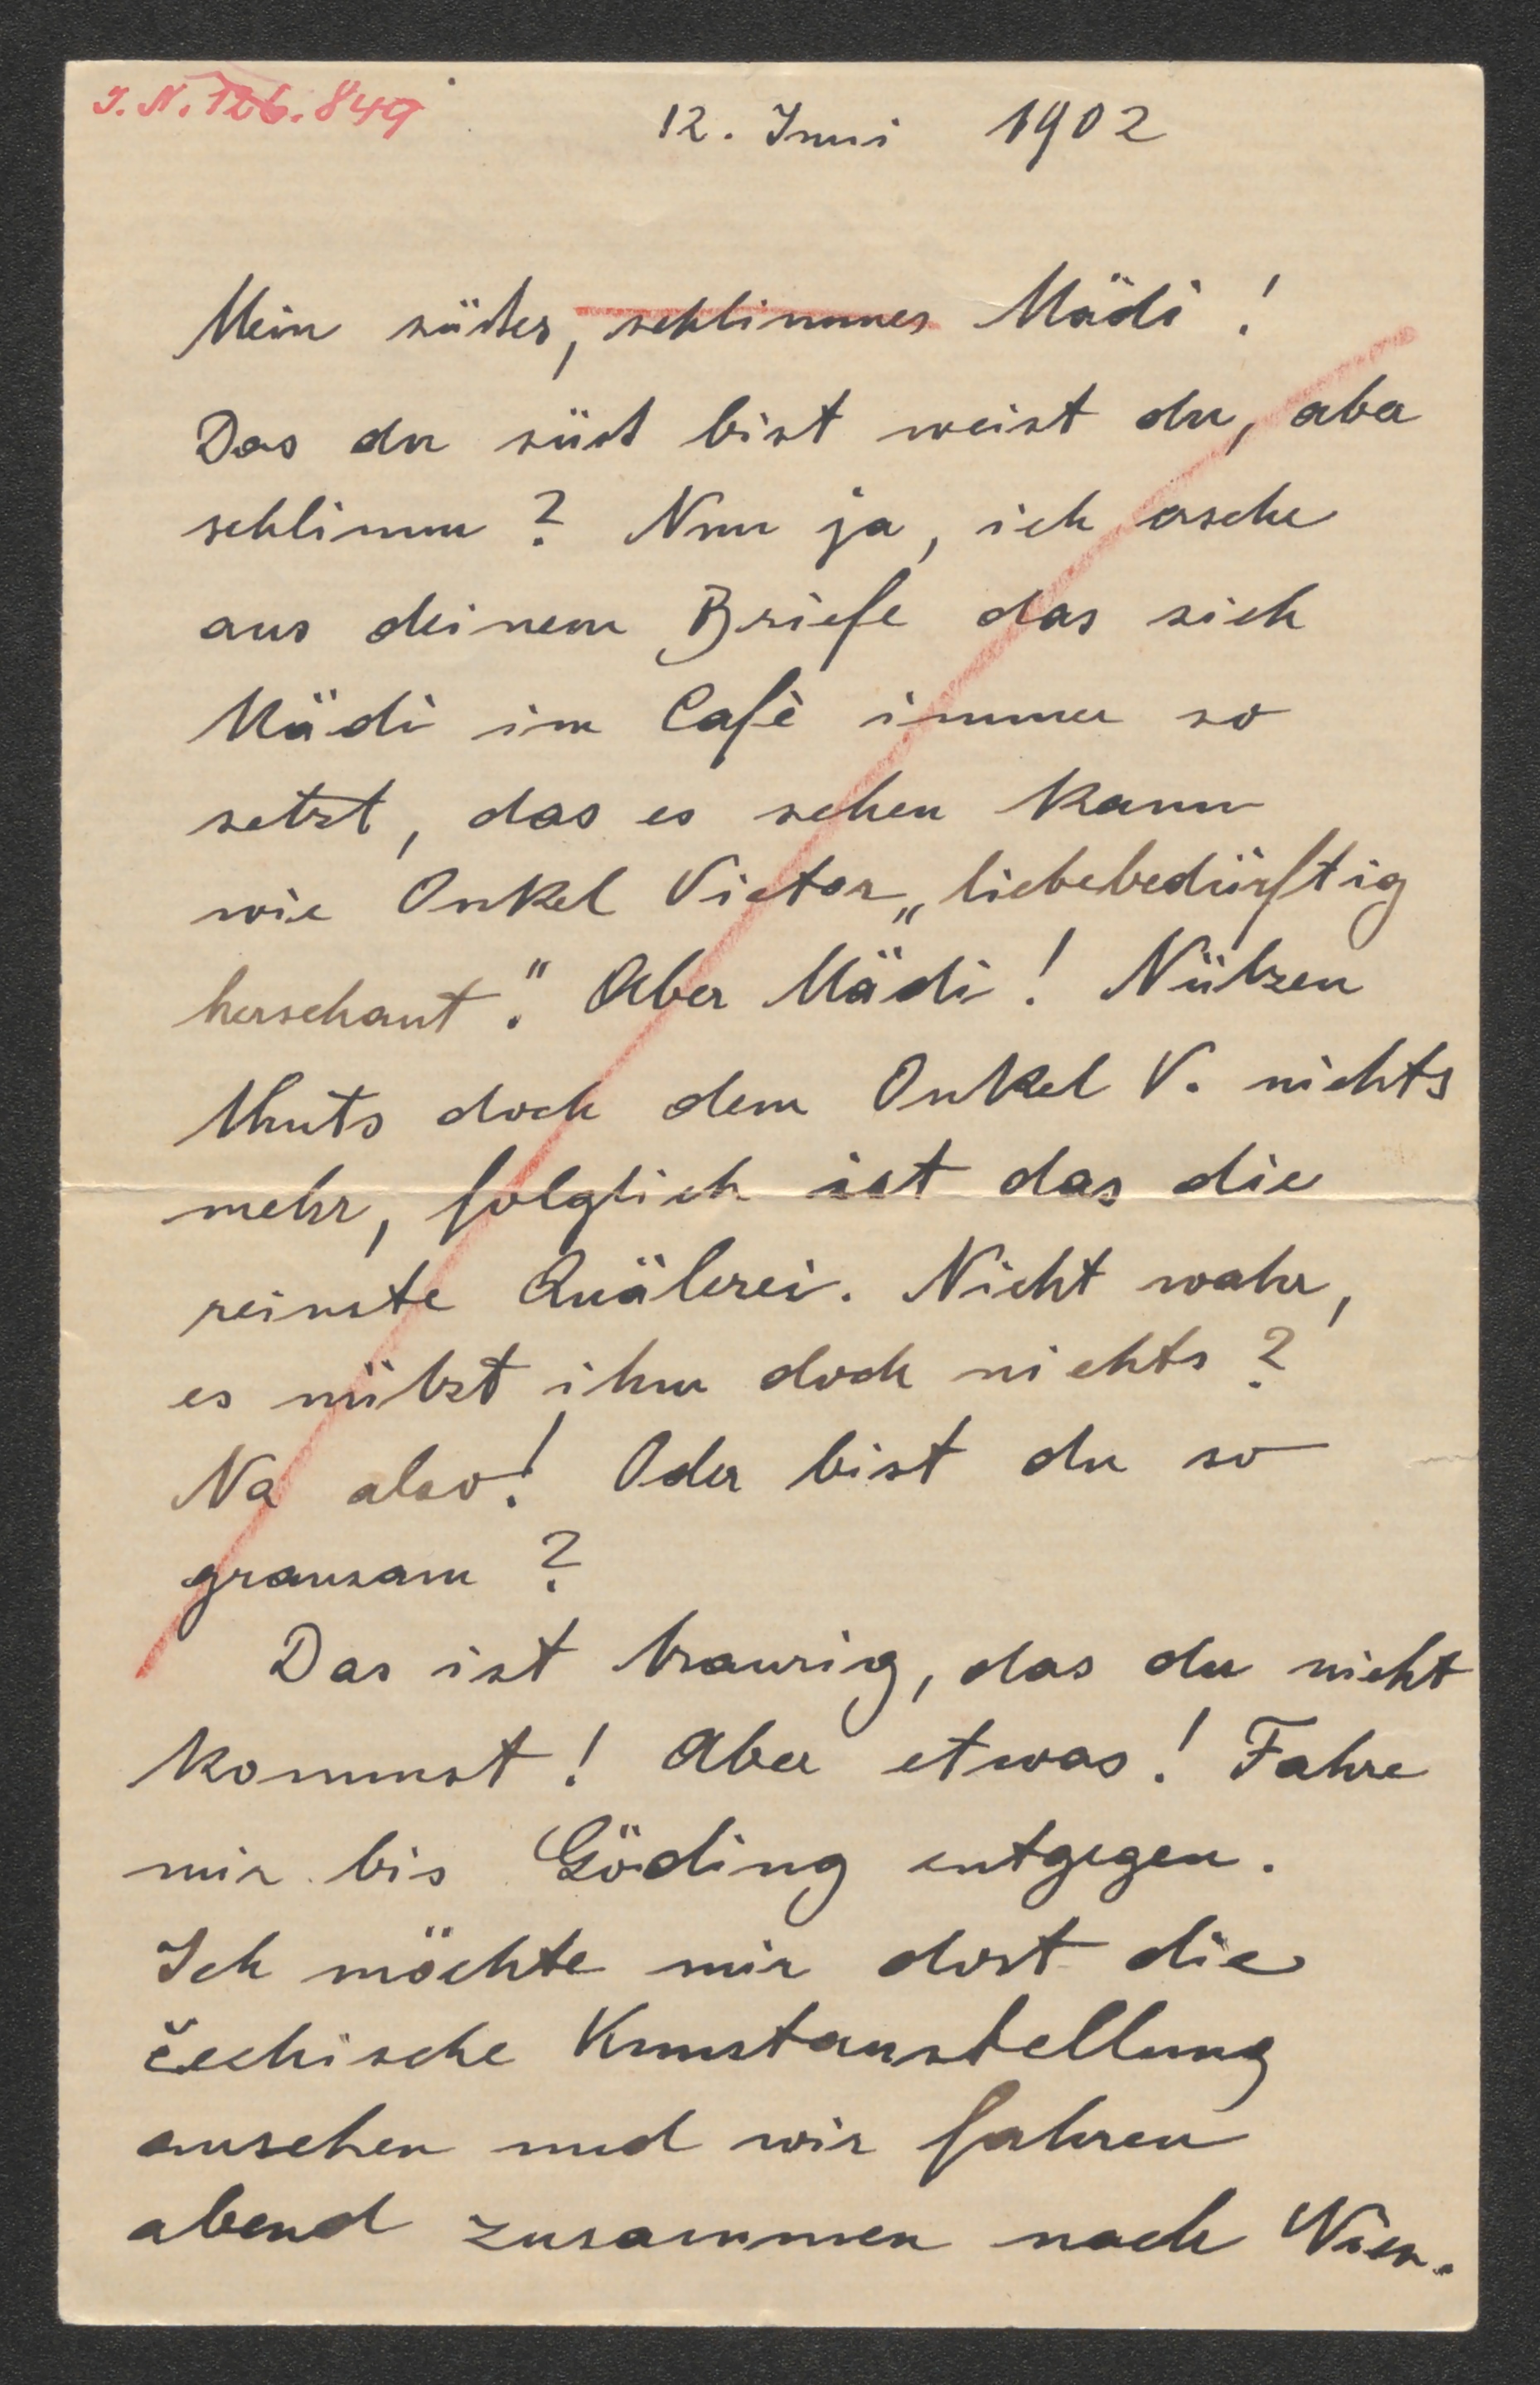 I. N. 126.849
12. Juni 1902
Mein süstes, schlimmes Mädi!
Das du süst bist weist du, aber
schlimm? Nun ja, ich ersehe
aus deinem Briefe das sich
Mädi im Cafè immer so
setzt, das es sehen kann
wie Onkel Victor „liebebedürftig
herschaut". Aber Mädi! Nützen
thuts doch dem Onkel V. nichts
mehr, folglich ist das die
reinste Quälerei. Nicht wahr,
es nützt ihm doch nichts?
Na also! Oder bist du so
grausam?
Das ist traurig, das du nicht
kommst! Aber etwas! Fahre
mir bis Göding entgegen.
Ich möchte mir dort die
čechische Kunstaustellung
ansehen und wir fahren
abend zusammen nach Wien.